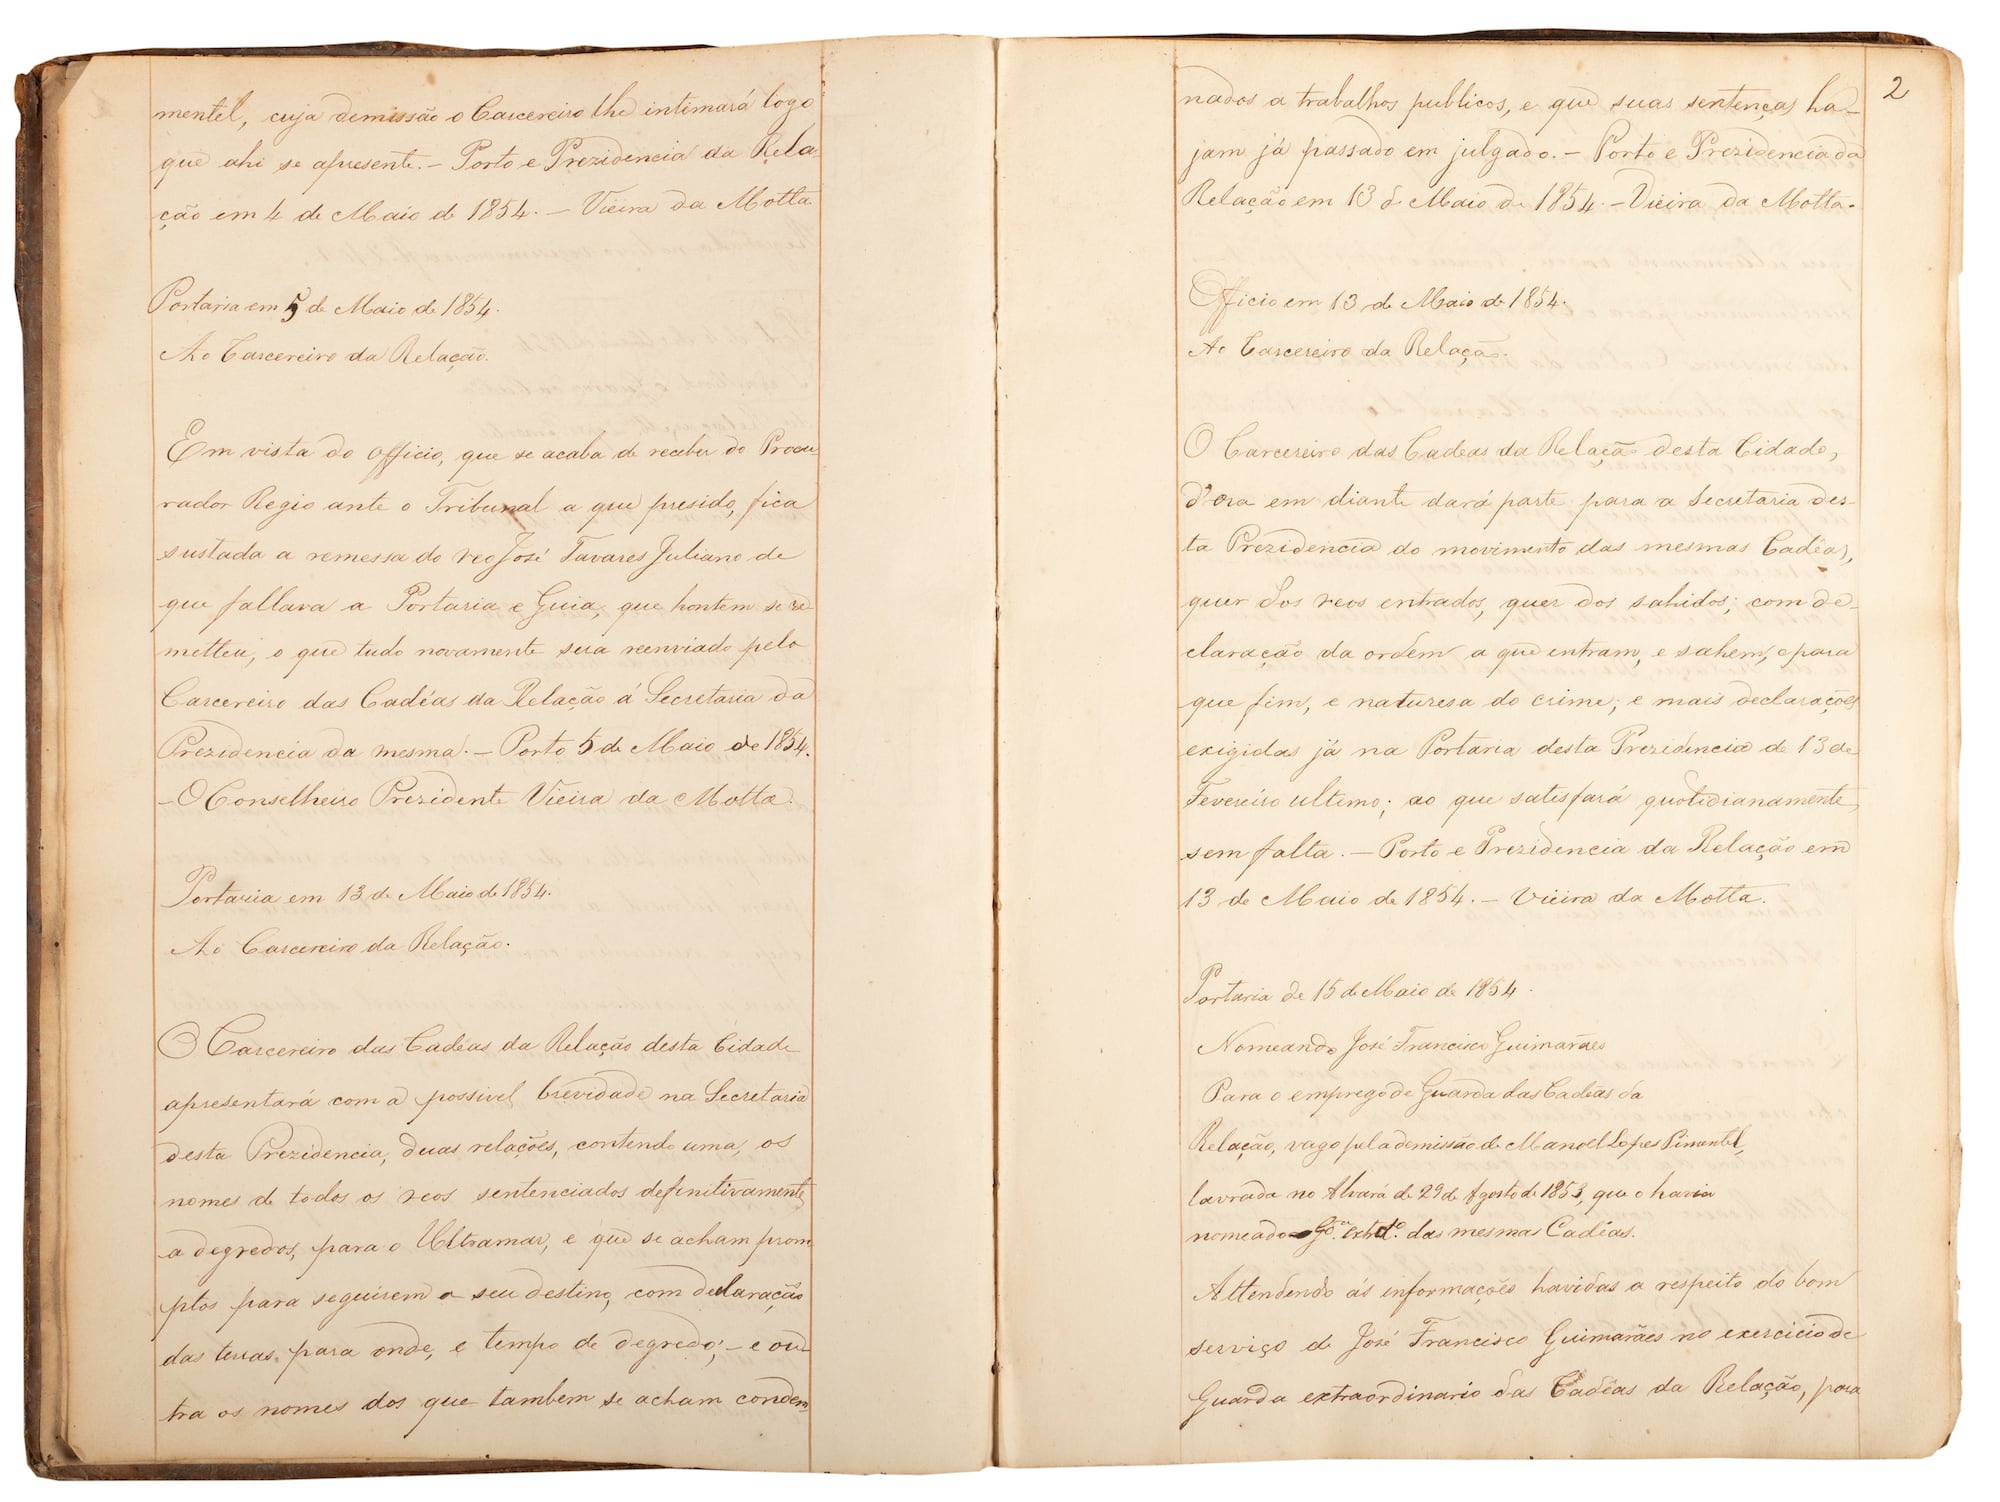 mentel, cuja demissão o Carcereiro lhe intimará logo
que ahi se apresente. - Porto e Prezidencia da Rela-
ção em 4 de Maio de 1854. - Vieira da Motta
Portaria em 5 de Maio de 1854.
Ao Carcereiro da Relação.
Em vista do Officio, que se acaba de receber do Procu
rador Regio ante o Tribunal a que presido, fica
sustada a remessa do reo José Tavares Juliano de
que fallava a Portaria e Guia, que hontem se re-
metteu, o que tudo novamente sera reenviado pelo
Carcereiro das Cadêas da Relação á Secretaria da
Prezidencia da mesma. - Porto 5 de Maio de 1854.
- O Conselheiro Prezidente Vieira da Motta.
Portaria em 13 de Maio de 1854.
Ao Carcereiro da Relação.
O Carcereiro das Cadêas da Relação desta Cidade
apresentará com a possivel brevidade na Secretaria
desta Prezidencia, duas relações, contendo uma, os
nomes de todos os reos sentenciados definitivamente
a degredos, para o Ultramar, e que se acham prom
ptos para seguirem o seu destino, com declaração
das terras, para onde, e tempo de degredo; - e ou-
tra os nomes dos que tambem se acham condem-
2
nados a trabalhos publicos, e que suas sentenças ha-
jam já passado em julgado. - Porto e Prezidencia da
Relação em 13 de Maio de 1854. - Vieira da Motta.
Officio em 13 de Maio de 1854.
Ao Carcereiro da Relação.
O Carcereiro das Cadeas da Relação desta Cidade,
d'ora em diante dará parte para a Secretaria des-
ta Prezidencia do movimento das mesmas Cadêas,
quer dos reos entrados, quer dos sahidos; com de-
claração da ordem a que entram, e sahem, e para
que fim, e naturesa do crime; e mais declarações
exigidas já na Portaria desta Prezidencia de 13 de
Fevereiro ultimo; ao que satisfará quotidianamente,
sem falta. - Porto e Prezidencia da Relação em
13 de Maio de 1854. - Vieira da Motta.
Portaria de 15 de Maio de 1854.
Nomeando José Francisco Guimarães
Para o emprego de Guarda das Cadêas da
Relação, vago pela demissão de Manoel Lopes Pimentel,
lavrada no Alvará de 29 de Agosto de 1853, que o havia
nomeado Gd.ª extr.º das mesmas Cadêas.
Attendendo ás informações havidas a respeito do bom
serviço de José Francisco Guimarães no exercicio de
Guarda extraordinario das Cadêas da Relação, para